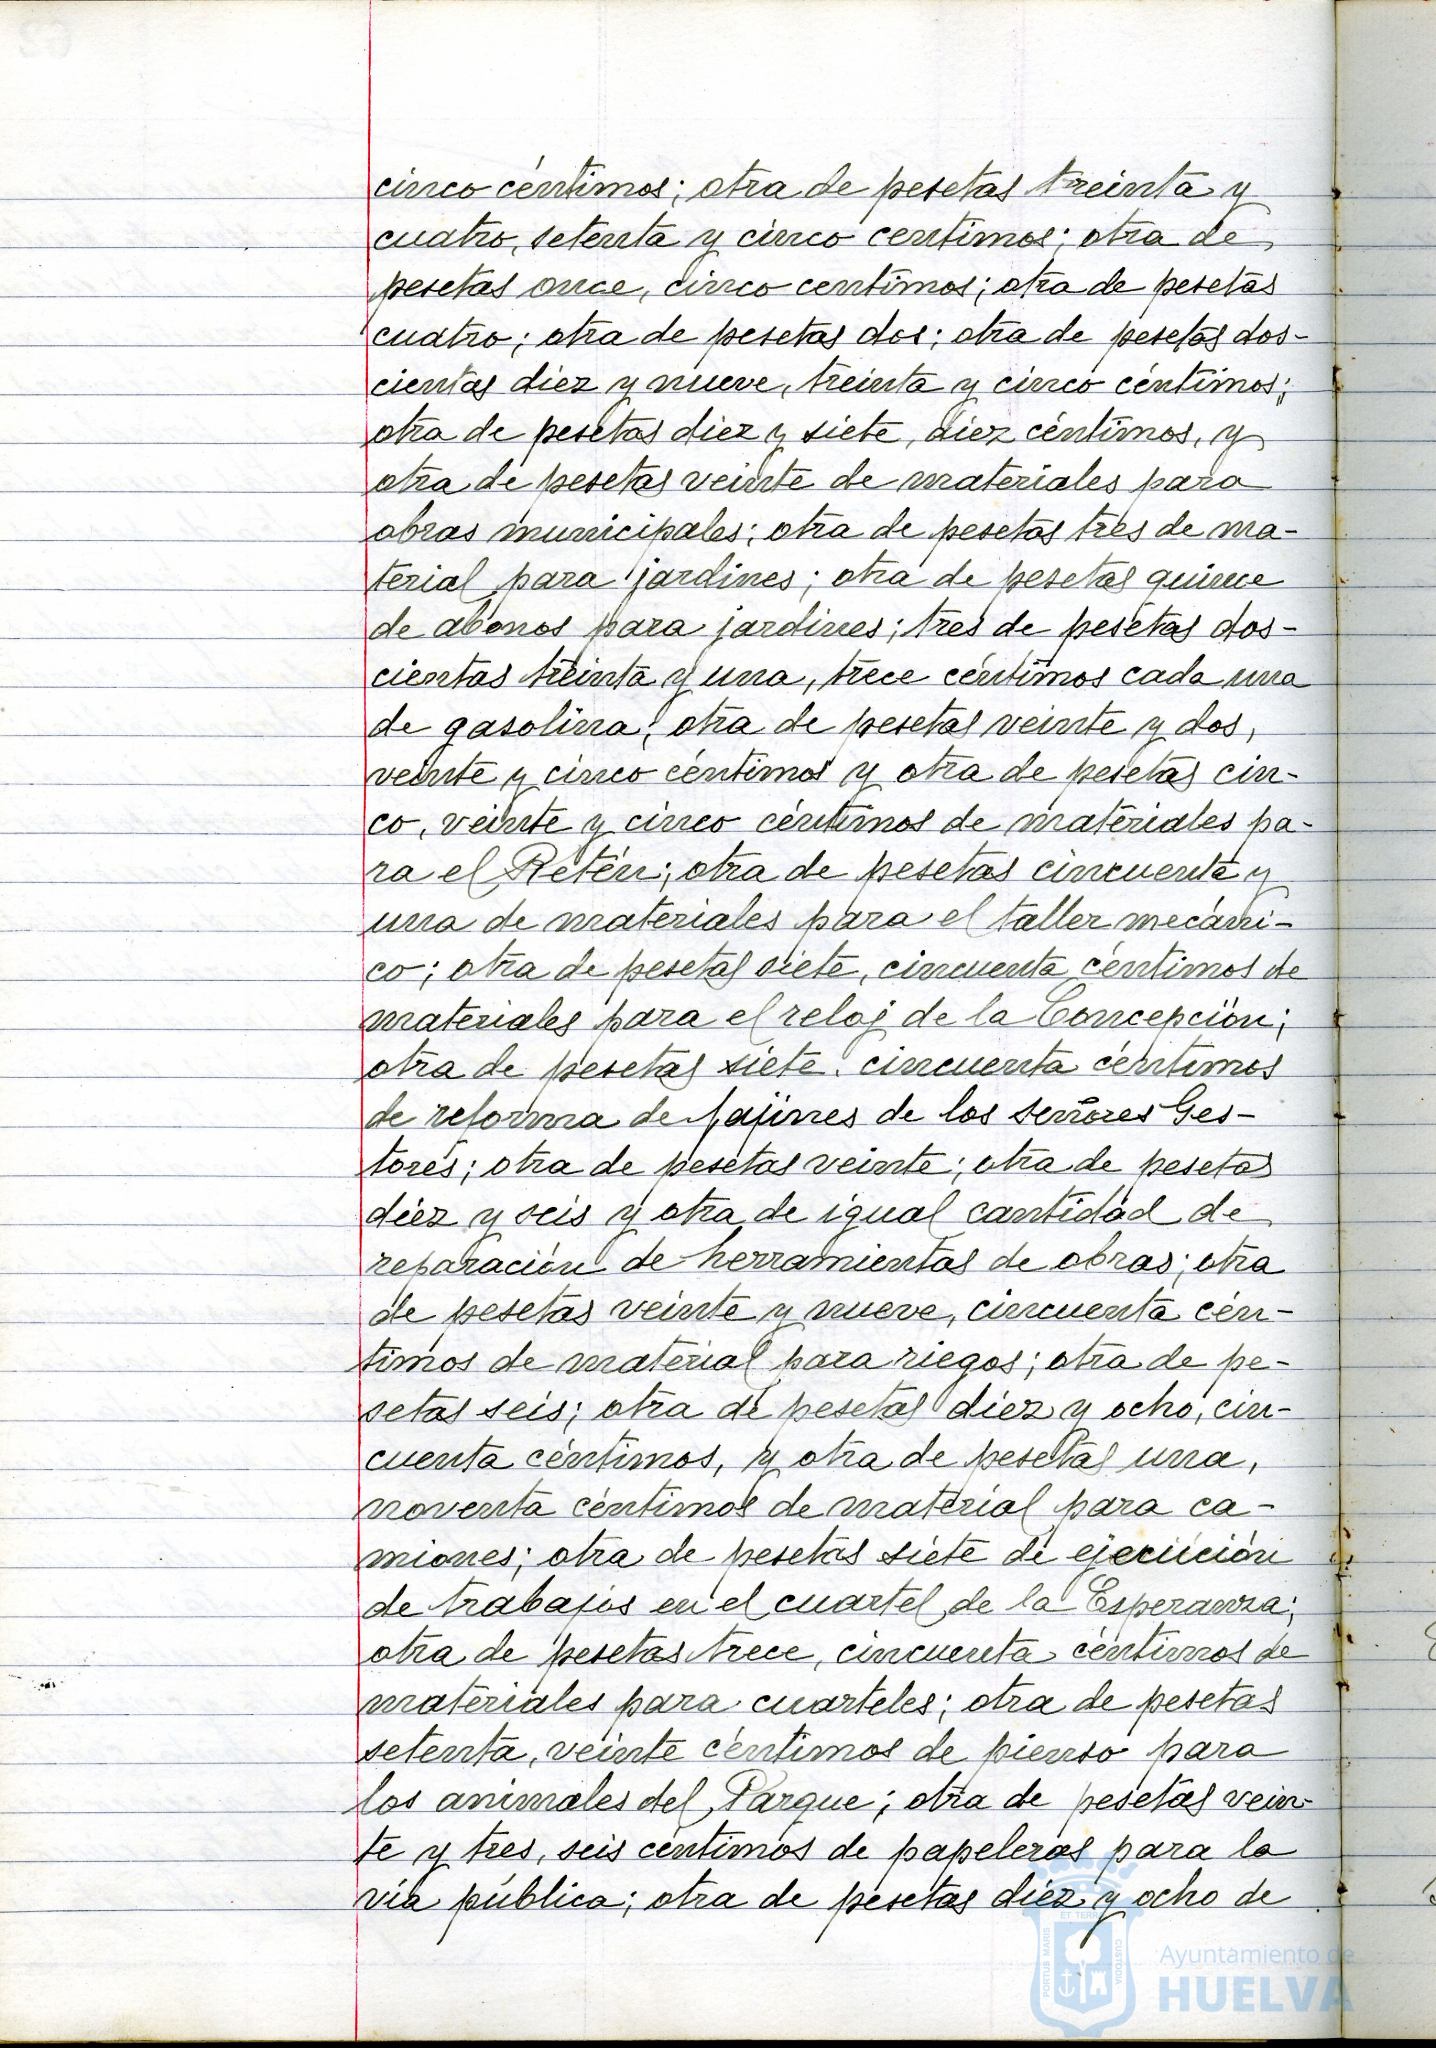 cinco céntimos; otra de pesetas treinta y
cuatro, setenta y cinco centimos; otra de
pesetas once, cinco centimos; otra de pesetas
cuatro; otra de pesetas dos; otra de pesetas dos-
cientas diez y nueve, treinta y cinco céntimos;
otra de pesetas diez y siete, diez céntimos, y
otra de pesetas veinte de materiales para
obras municipales; otra de pesetas tres de ma-
terial para jardines; otra de pesetas quince
de abonos para jardines; tres de pesetas dos-
cientas treinta y una, trece céntimos cada una
de gasolina; otra de pesetas veinte y dos,
veinte y cinco céntimos y otra de pesetas cin-
co, veinte y cinco céntimos de materiales pa-
ra el Retén; otra de pesetas cincuenta y
una de materiales para el taller mecáni-
co; otra de pesetas siete, cincuenta céntimos de
materiales para el reloj de la Concepción;
otra de pesetas siete, cincuenta céntimos
de reforma de fajines de los señores Ges-
tores; otra de pesetas veinte; otra de pesetas
diez y seis y otra de igual cantidad de
reparación de herramientas de obras; otra
de pesetas veinte y nueve, cincuenta cén-
timos de material para riegos; otra de pe-
setas seis; otra de pesetas diez y ocho, cin-
cuenta céntimos, y otra de pesetas una,
noventa céntimos de material para ca-
miones; otra de pesetas siete de ejecución
de trabajos en el cuartel de la Esperanza;
otra de pesetas trece, cincuenta céntimos de
materiales para cuarteles; otra de pesetas
setenta, veinte céntimos de pienso para
los animales del Parque; otra de pesetas vein-
te y tres, seis centimos de papeleras para la
vía pública; otra de pesetas diez y ocho de
PORTUS MARIS ET TERRAE CUSTODIA
Ayuntamiento de
HUELVA